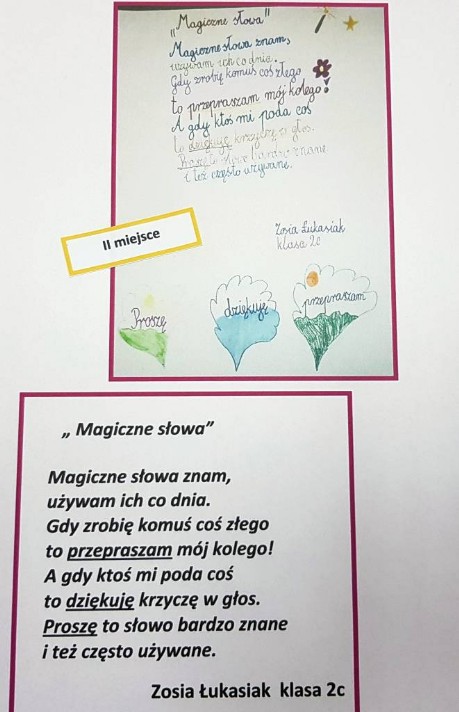 „Magiczne słowa"
Magiczne słowa znam,
używam ich co dnia.
Gdy zrobię komuś coś złego
to przepraszam mój kolego!
A gdy ktoś mi poda coś
to dziękuję krzyczę w głos.
Proszę to słowo bardzo znane
i też często używane.
Zosia Łukasiak
klasa 2c
II miejsce
Proszę
dziękuję
przepraszam
„ Magiczne słowa”
Magiczne słowa znam,
używam ich co dnia.
Gdy zrobię komuś coś złego
to przepraszam mój kolego!
A gdy ktoś mi poda coś
to dziękuję krzyczę w głos.
Proszę to słowo bardzo znane
i też często używane.
Zosia Łukasiak klasa 2c